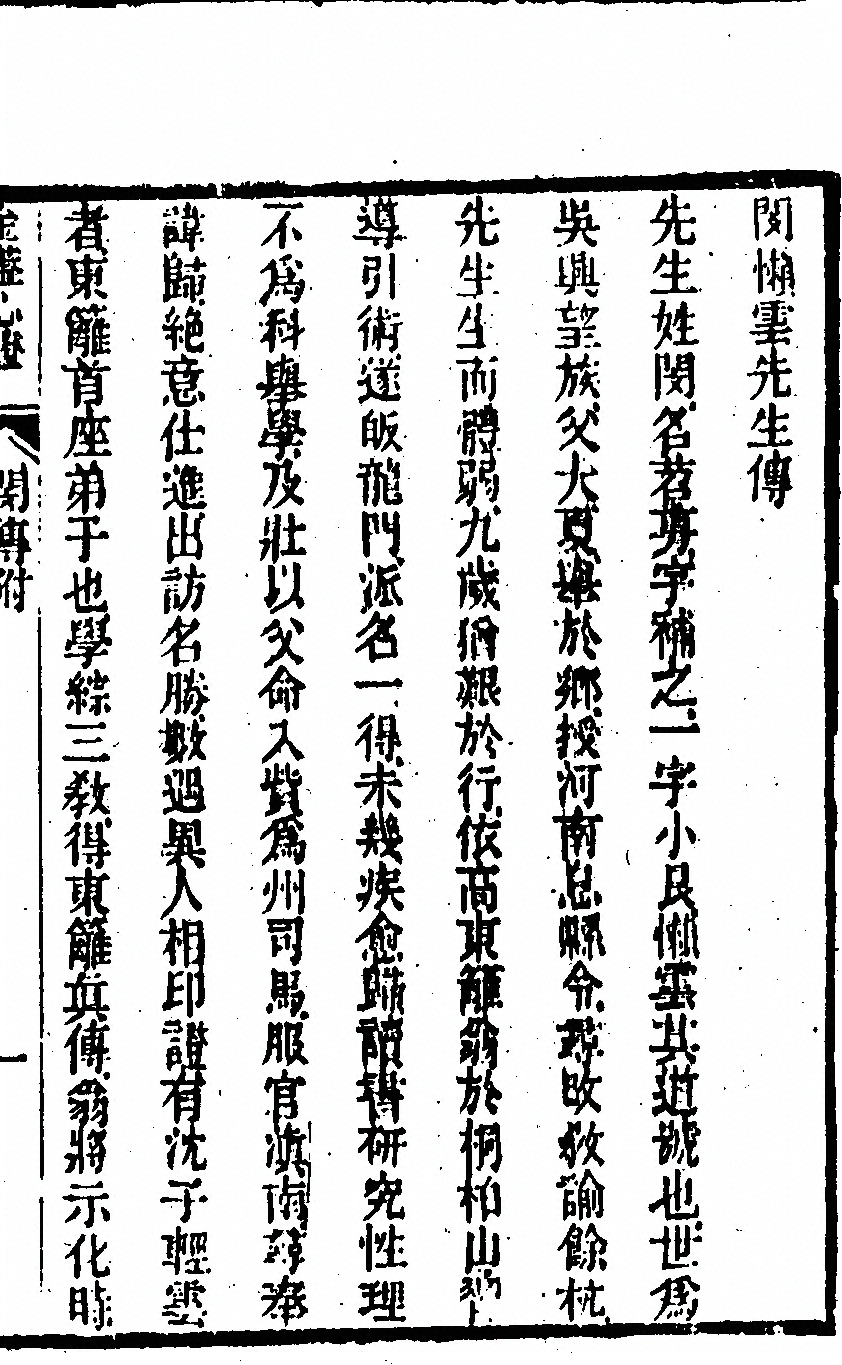 閔懶雲先生傳
先生姓閔名苕旉字補之一字小艮懶雲其道號也世爲
吳興望族父大夏舉於鄉授河南息縣令改教諭餘杭
先生生而體弱九歲猶艱於行依高東籬翁於桐柏山習
導引術遂皈龍門派名一得未幾疾愈歸讀書研究性理
不爲科舉學及壯以父命入貲爲州司馬服官滇南奉
諱歸絕意仕進出訪名勝數遇異人相印證有沈子輕雲
者東籬首座弟子也學綜三教得東籬真傳翁將示化時
金蓋心燈
閔傳附
一